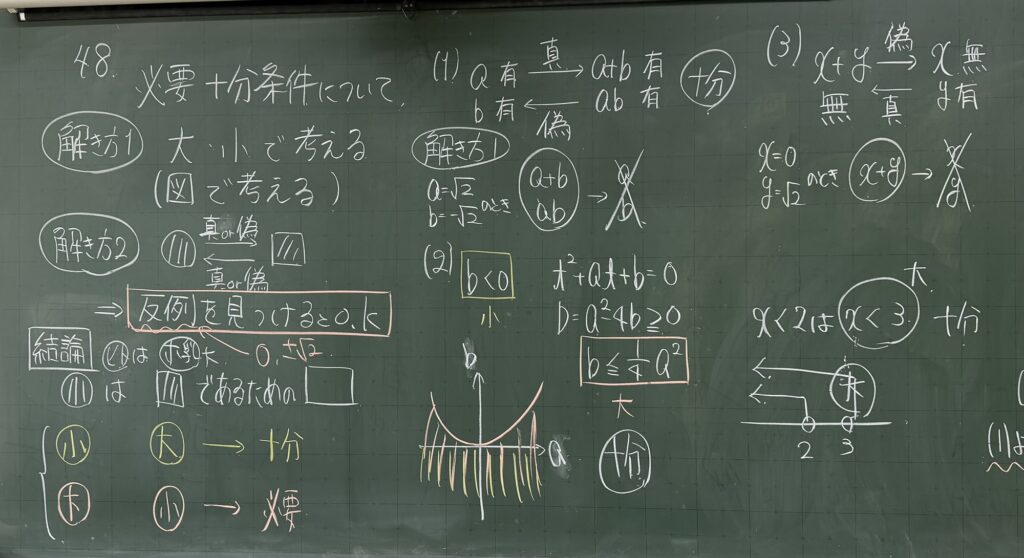 48.
必要十分条件について.
解き方1 大・小で考える
(図で考える)
解き方2
真or偽
真or偽
⇒ 反例を見つけるとO.K
0, ±√2
結論 は 大
は であるための
小 大 → 十分
大 小 → 必要
(1) a有 真→ a+b有 十分
b有 ←偽 ab有
解き方1
a=√2
b=-√2 のとき a+b ab → a b
(2) b<0 t²+at+b=0
小 D=a²4b≧0
b≦1/4a²
大
b
a
十分
(3) x+y 偽→ x無
無 ←真 y有
x=0
y=√2 のとき x+y → x y
大
x<2は x<3. 十分
大
2 3
(1)よ